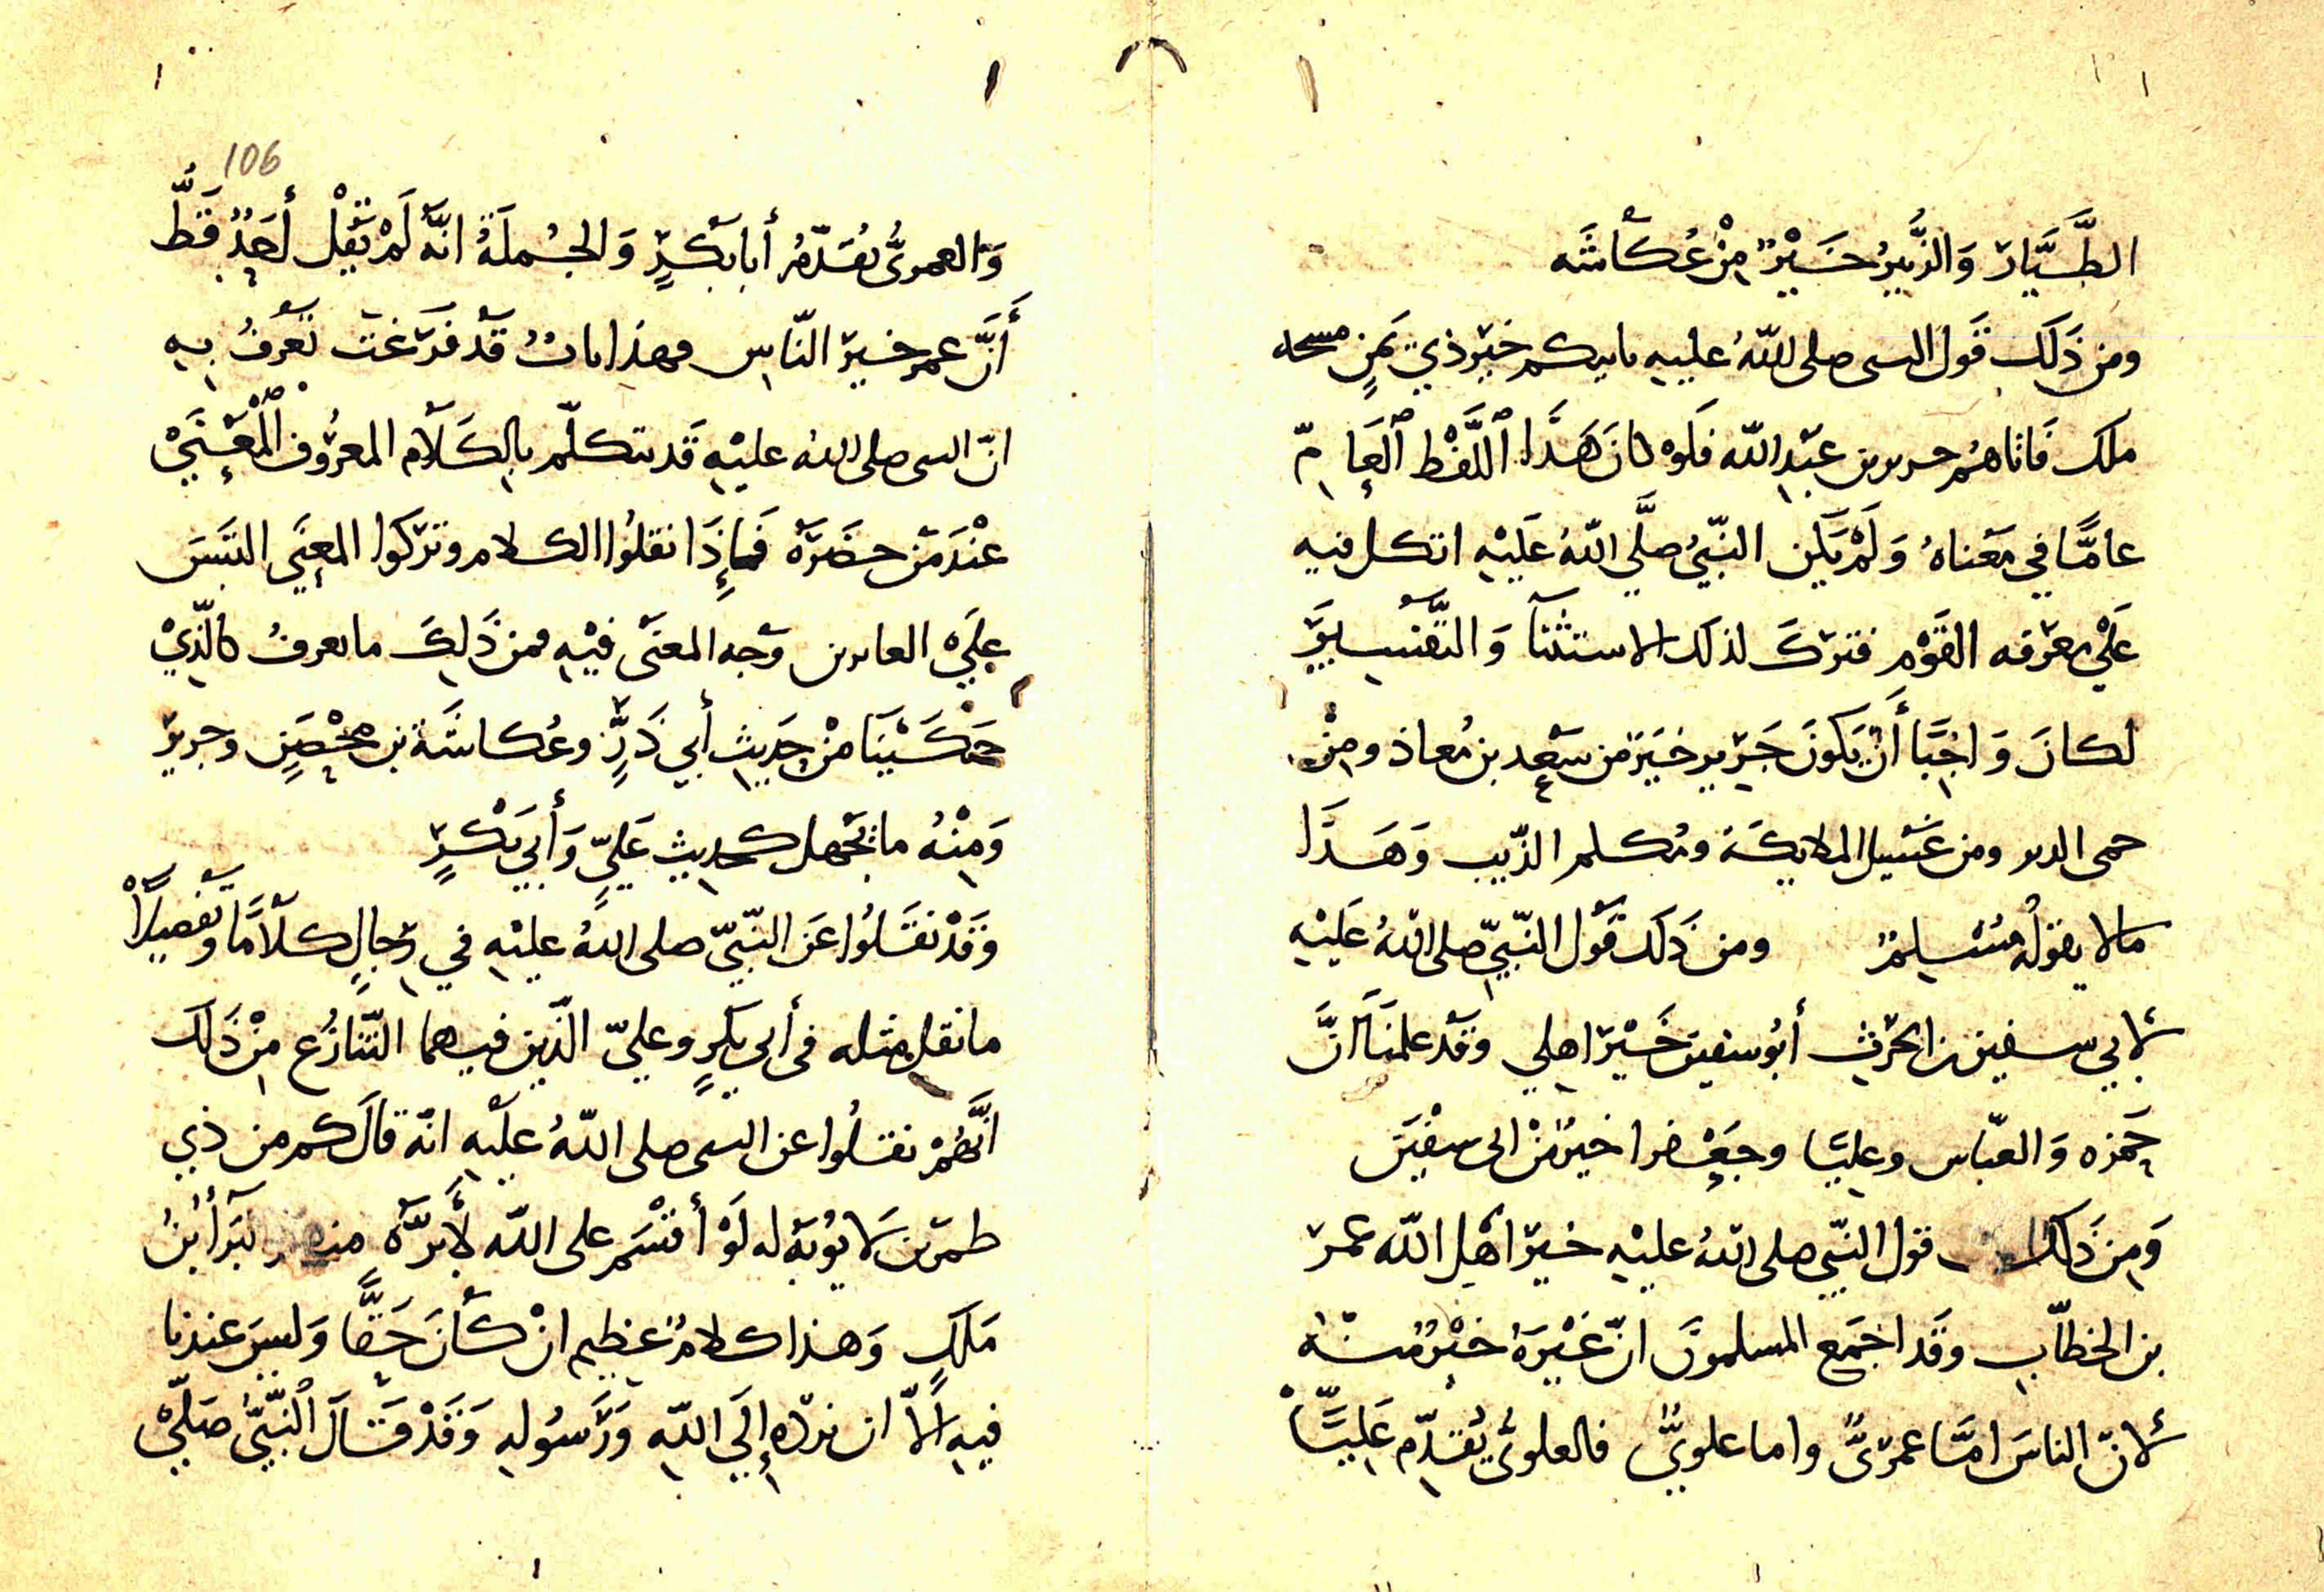 الطَّيَّار وَالزُّبيرُ خَيْرٌ مِنْ عُكاشَه
ومن ذَلَك قَول النبى صلى اللهُ عليهِ ياتيكم خَير ذي يَمنٍ مسحه
ملك فَاتاهُم جرير بن عَبْد الله فلَو كانَ هَذَا اللَّفْظ العَامّ
عامَّا في مَعْناهُ وَلَمْ يَكن النّبيُ صلَّى اللهُ عَلَيْهِ اتكل فيه
عَلَى مَعْرفه القَوْم فتركَ لذلك الاستثنآ وَالتَّفْسير
لكانَ وَاجبًا أَنْ يَكونَ جَرير خَيرَ من سَعد بن مُعاذ ومِنْ
حمى الدبر ومن غَسيل الملايكَة ومُكلم الذّيب وَهَذَا
مالا يقولُه مُسْلمٌ ومن ذَلَك قَول النّبيّ صلى اللهُ عَلَيْهِ
لابي سفين بن الحرث أبُو سفين خَيْر اهلي وقَدْ علمنَا انَّ
حَمزه وَالعبّاس وعليًّا وجَعْفرا خيرٌ مْن ابى سفْيَن
وَمِن ذَلك قول النّبى صلى اللهُ عليْهِ خَير اَهْل الله عمر
بن الخطّاب وقَد اجمَع المسلمونَ انّ غَيْرَهُ خَيْرٌ منهُ
لانّ الناسَ امَّا عمرىٌّ واما علويٌّ فالعلوىُّ يُقدّم عَليًّا
106
وَالعمرىُّ يُقَدّمُ أبا بَكْرٍ وَالجُملَةُ انّهُ لَمْ يَقُلْ أحَدٌ قَطُّ
أَنَّ عمر خَير النّاس وهذا بابٌ قَدْ فَرغت تَعْرفُ بهِ
انّ النبى صلى اللهُ عليْهِ قَد يتكلّم بالكَلَام المعرُوف الْمَعْنَى
عنْدَ مَن حضَرَهُ فَإِذَا نقلُوا الكلام وتركَوا المعنَى التبَسَ
عَلَى العابرين وَجه المعنَى فيْهِ فمن ذَلِكَ ما يعرفُ كالَّذيْ
حَكَيْنَا منْ حَديث أبي ذَرٍّ وعُكاشَة بن مِحْصَنٍ وجرير
وَمِنْهُ ما يجْهل كحديث عَليٍّ وَأَبي بَكْرٍ
وَقَدْ نقَلُوا عَن النّبيّ صلى اللهُ عليْهِ في رجالٍ كلَامًا وتفْصيلًا
ما نقل مثله فى أبى بكرٍ وعليّ الَّذين فيهما التّنازُع منْ ذَلَك
انَّهُمْ نقلُوا عن النبى صلى اللهُ عليْهِ انّهُ قالَ كم من ذي
طمرَين لَا يُوبَهُ له لَوْ أقسَم على الله لأَبرَّهُ منهم بَرآ بْنُ
مَلَكٍ وَهذا كلامٌ عظيم انْ كَانَ حَقًّا وَليسَ عندنا
فيهِ الَّا ان نردّه إلَى الله وَرَسُوله وَقَدْ قَالَ النّبيُّ صَلَّى